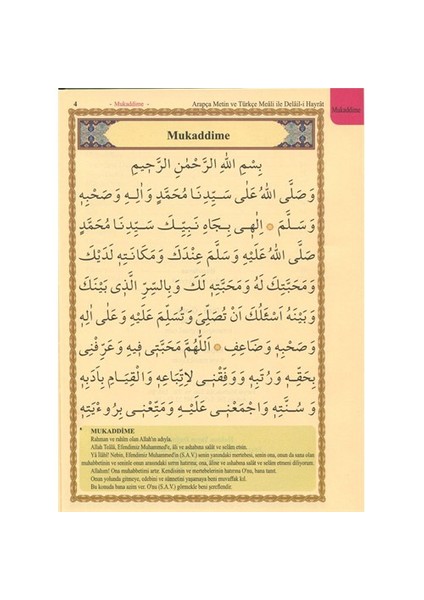 4
- Mukaddime -
Arapça Metin ve Türkçe Meâli ile Delâil-i Hayrât
Mukaddime
Mukaddime
بِسْمِ اللهِ الرَّحْمٰنِ الرَّحٖيمِ
وَصَلَّى اللهُ عَلٰى سَيِّدِنَا مُحَمَّدٍ وَاٰلِهٖ وَصَحْبِهٖ
وَسَلَّمَ ۞ اِلٰهٖى بِجَاهِ نَبِيِّكَ سَيِّدِنَا مُحَمَّدٍ
صَلَّى اللهُ عَلَيْهِ وَسَلَّمَ عِنْدَكَ وَمَكَانَتِهٖ لَدَيْكَ
وَمَحَبَّتِكَ لَهُ وَمَحَبَّتِهٖ لَكَ وَبِالسِّرِّ الَّذٖى بَيْنَكَ
وَبَيْنَهُ اَسْئَلُكَ اَنْ تُصَلِّىَ وَتُسَلِّمَ عَلَيْهِ وَعَلٰى اٰلِهٖ
وَصَحْبِهٖ وَضَاعِفِ ۞ اَللّٰهُمَّ مَحَبَّتٖى فٖيهِ وَعَرِّفْنٖى
بِحَقِّهٖ وَرُتَبِهٖ وَوَفِّقْنٖى لِاتِّبَاعِهٖ وَالْقِيَامِ بِاَدَبِهٖ
وَسُنَّتِهٖ وَاجْمَعْنٖى عَلَيْهِ وَمَتِّعْنٖى بِرُؤْيَتِهٖ
MUKADDİME
Rahman ve rahîm olan Allah'ın adıyla.
Allah Teâlâ, Efendimiz Muhammed'e, âli ve ashabına salât ve selâm etsin.
Yâ İlâhî! Nebin, Efendimiz Muhammed'in (S.A.V.) senin yanındaki mertebesi, senin ona, onun da sana olan
muhabbetinin ve seninle onun arasındaki sırrın hatırına; ona, âline ve ashabına salât ve selâm etmeni diliyorum.
Allahım! Ona muhabbetimi artır. Kendisinin ve mertebelerinin hatırına O'nu, bana tanıt.
Onun yolunda gitmeye, edebini ve sünnetini yaşamaya beni muvaffak kıl.
Bu konuda bana azim ver. O'nu (S.A.V.) görmekle beni şereflendir.